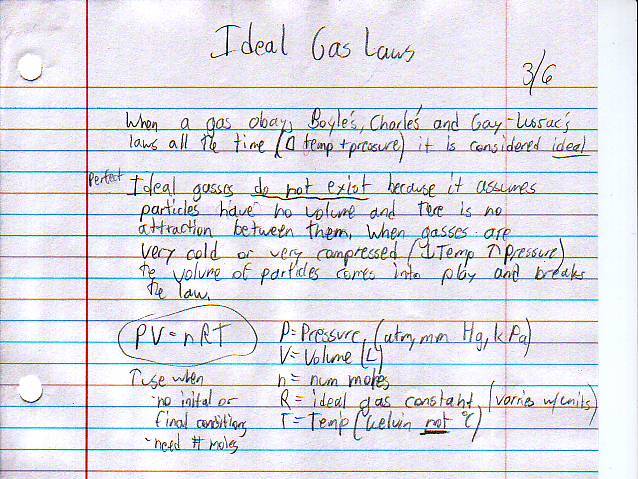 Ideal Gas Laws
3/6
When a gas obays Boyle's, Charle's and Gay-Lussac's
laws all the time (Δ temp + pressure) it is considered ideal
Perfect Ideal gasses do not exist because it assumes
particles have no volume and tere is no
attraction between them. When gasses are
very cold or very compressed (↓Temp ↑Pressure)
the volume of particles comes into play and breaks
the law.
PV=nRT
P=Pressure, (atm, mm Hg, kPa)
V=Volume (L)
n=num moles
R=ideal gas constant (varries w/units)
T=Temp (Kelvin not °C)
↑ use when
-no inital or
final conditions
-need # moles